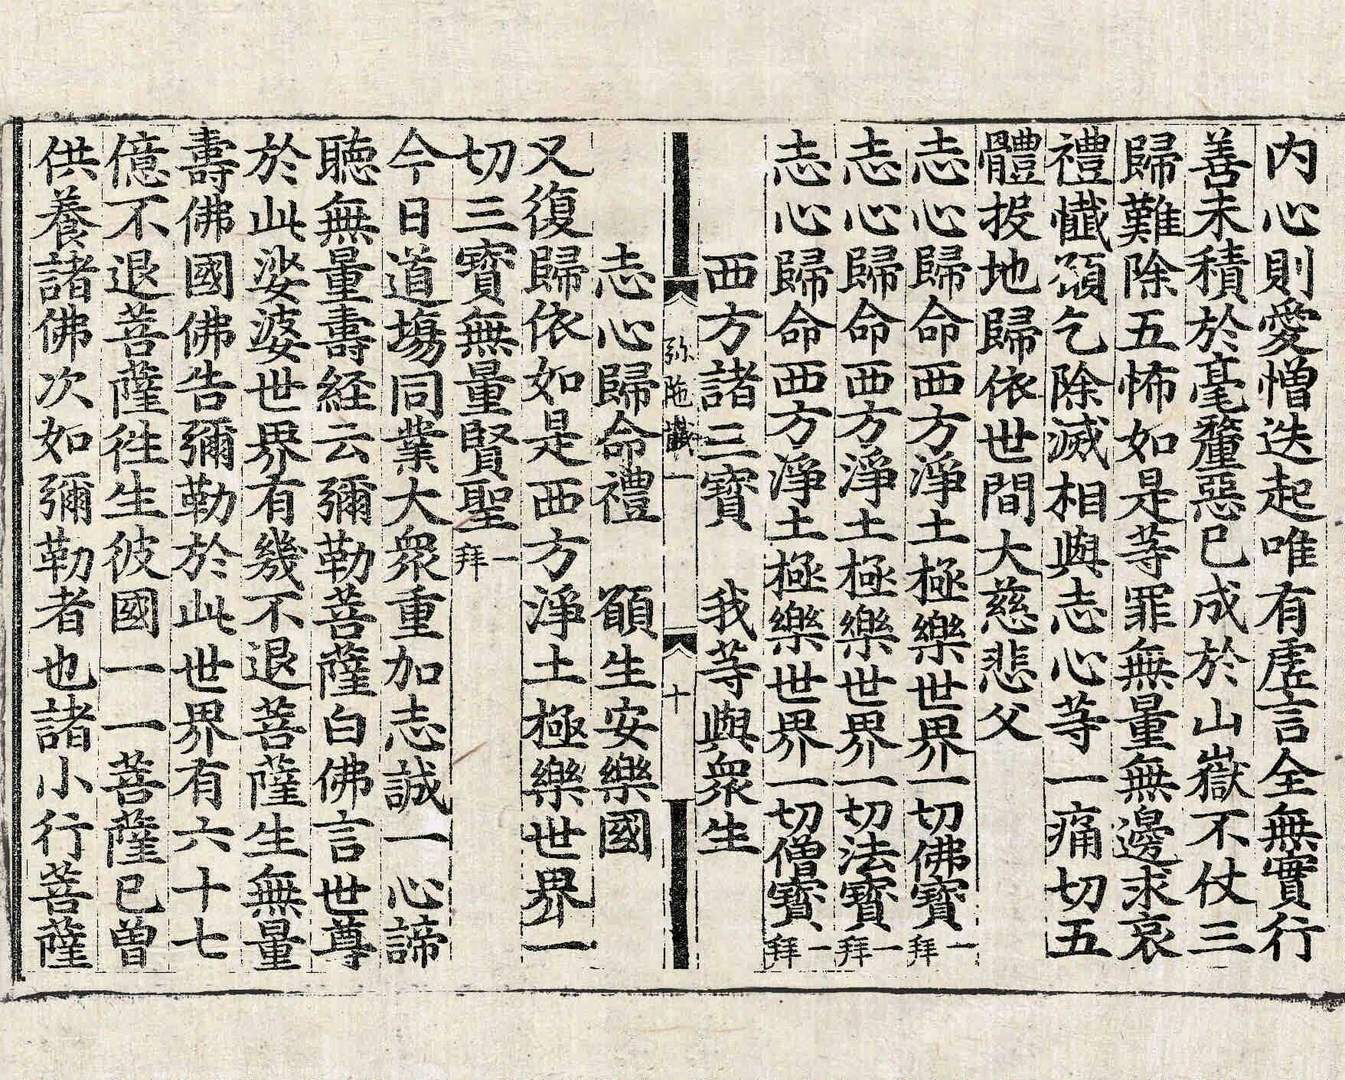 内心則愛憎迭起唯有虛言全無實行
善未積於毫釐惡已成於山嶽不仗三
歸難除五怖如是等罪無量無邊求哀
禮懺頟乞除滅相與志心等一痛切五
體投地歸依世間大慈悲父
志心歸命西方淨土極樂世界一切佛寶一拜
志心歸命西方淨土極樂世界一切法寶一拜
志心歸命西方淨土極樂世界一切僧寶一拜
西方諸三寶　我等與衆生
弥陁懺一　十
志心歸命禮　頟生安樂國
又復歸依如是西方淨土極樂世界一
切三寶無量賢聖一拜
今日道塲同業大衆重加志誠一心諦
聽無量壽経云彌勒菩薩白佛言世尊
於此娑婆世界有幾不退菩薩生無量
壽佛國佛告彌勒於此世界有六十七
億不退菩薩徃生彼國一一菩薩已曾
供養諸佛次如彌勒者也諸小行菩薩